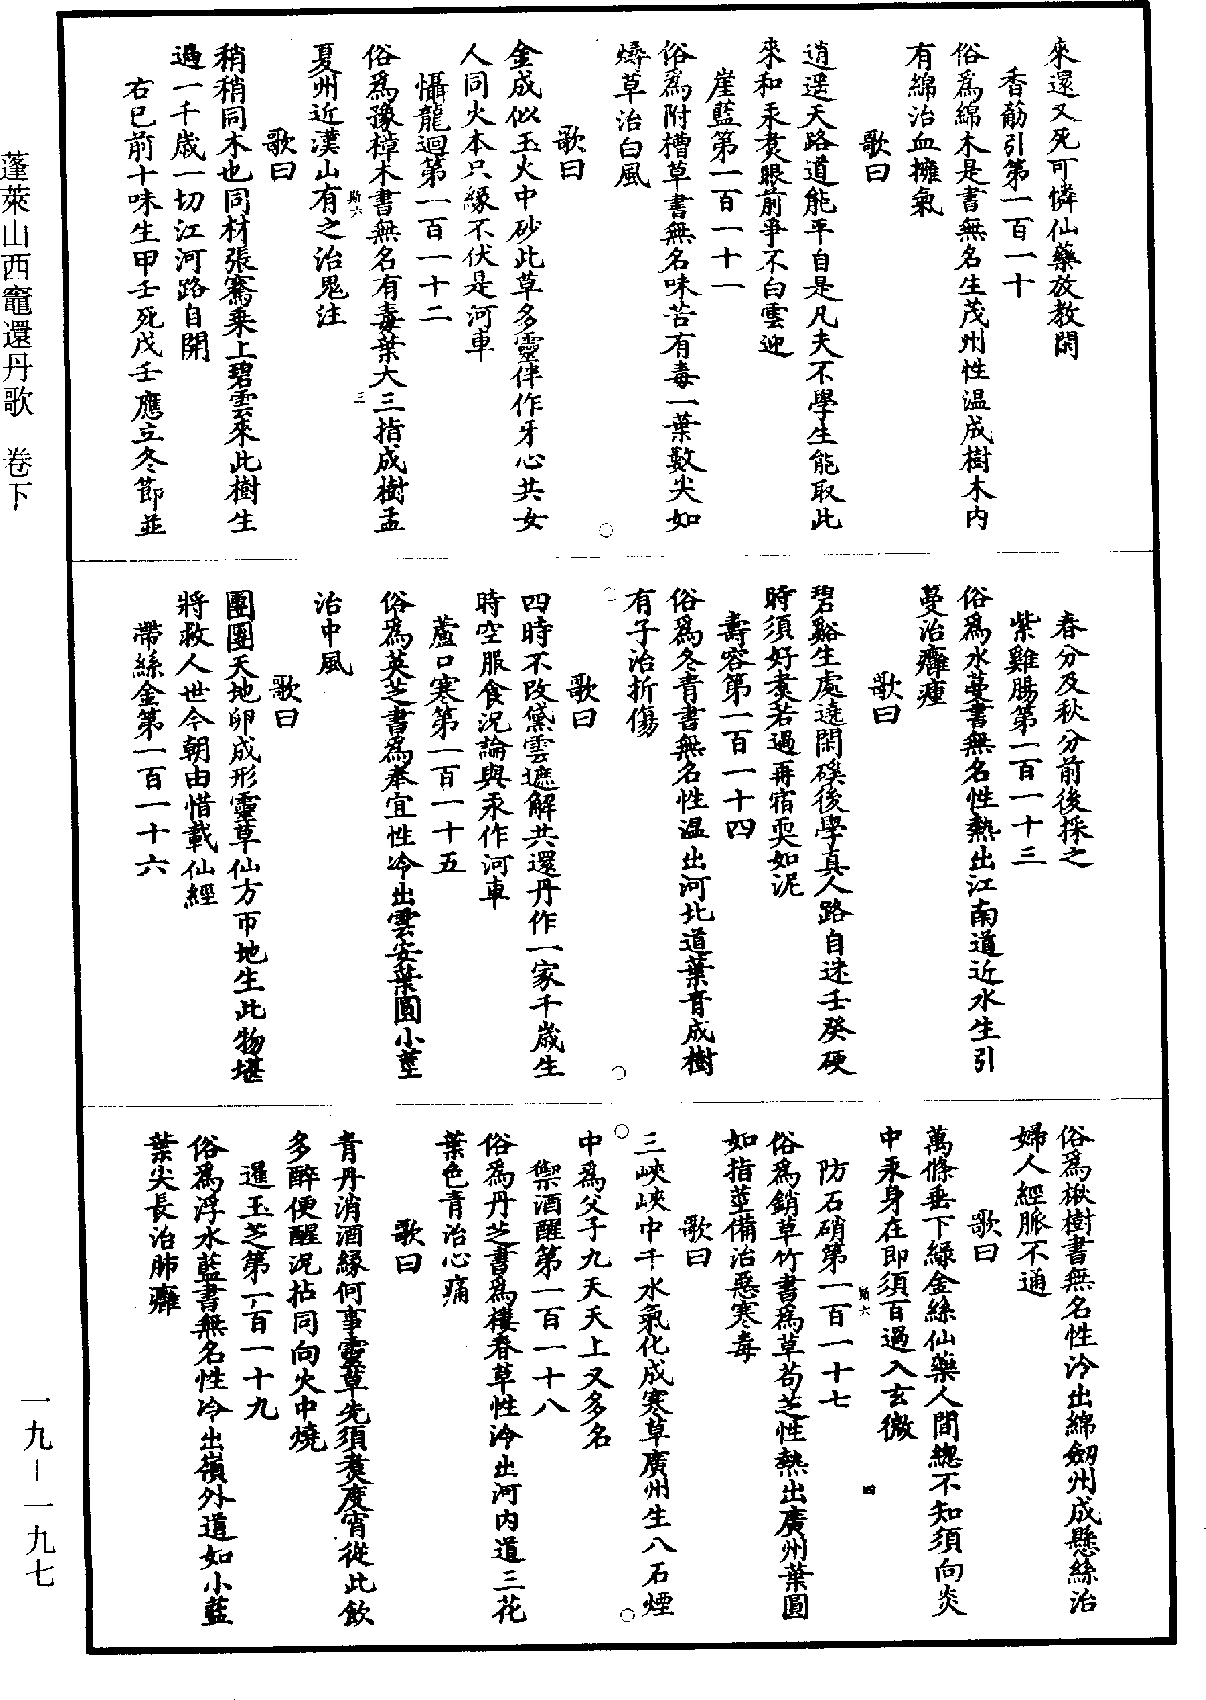 來還又死可憐仙藥放教閑
香筋引第一百一十
俗爲綿木是書無名生茂州性温成樹木内
有綿治血擁氣
歌曰
逍遥天路道能平自是凡夫不學生能取此
來和汞煑眼前爭不白雲迎
崖藍第一百一十一
俗爲附槽草書無名味苦有毒一葉數尖如
燖草治白風
歌曰
金成似玉火中砂此草多靈伴作牙心共女
人同火本只緣不伏是河車
懾龍迴第一百一十二
俗爲豫樟木書無名有毒葉大三指成樹孟
夏州近漢山有之治鬼注
歌曰
稍稍同木也同材張騫乘上碧雲來此樹生
過一千歲一切江河路自開
右已前十味生甲壬死戊壬應立冬節並
春分及秋分前後採之
紫雞腸第一百一十三
俗爲水蔓書無名性熱出江南道近水生引
蔓治癰瘇
歌曰
碧谿生處遶閑磎後學真人路自迷壬癸硬
時須好煑若過再宿耎如泥
壽容第一百一十四
俗爲冬青書無名性温出河北道葉青成樹
有子治折傷
歌曰
四時不改黛雲遮解共還丹作一家千歲生
時空服食況論與汞作河車
蘆口寒第一百一十五
俗爲英芝書爲奉宜性冷出雲安葉圓小莖
治中風
歌曰
團團天地卵成形靈草仙方帀地生此物堪
將救人世今朝由惜載仙經
帶絲金第一百一十六
俗爲楸樹書無名性冷出綿劒州成懸絲治
婦人經脈不通
歌曰
萬條垂下緑金絲仙藥人間總不知須向炎
中汞身在即須百過入玄微
防石硝第一百一十七
俗爲銷草竹書爲草苟芝性熱出廣州葉圓
如指莖備治惡寒毒
歌曰
三峽峽中千水氣化成寒草廣州生八石煙
中爲父子九天天上又多名
禦酒醒第一百一十八
俗爲丹芝書爲樓春草性冷出河内道三花
葉色青治心痛
歌曰
青丹消酒緣何事靈草先須煑度宵從此飲
多醉便醒況拈同向火中燒
暹玉芝第一百一十九
俗爲浮水藍書無名性冷出嶺外道如小藍
葉尖長治肺癰
蓬萊山西竈還丹歌 卷下
一九－一九七